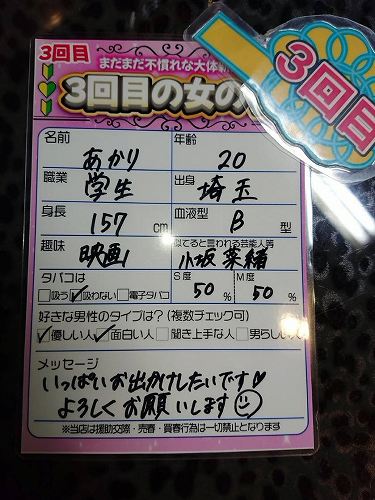 3回目
まだまだ不慣れな大体験
3回目の女の
3回目
名前 あかり 年齢 20
職業 学生 出身 埼玉
身長 157 cm 血液型 B 型
趣味 映画 似てると言われる芸能人等 小坂菜緒
タバコは S度 M度
吸う 吸わない 電子タバコ 50 % 50 %
好きな男性のタイプは?(複数チェック可)
優しい人 面白い人 聞き上手な人 男らしい人
メッセージ
いっぱいお出かけしたいです♡
よろしくお願いします
※当店は援助交際・売春・買春行為は一切禁止となります